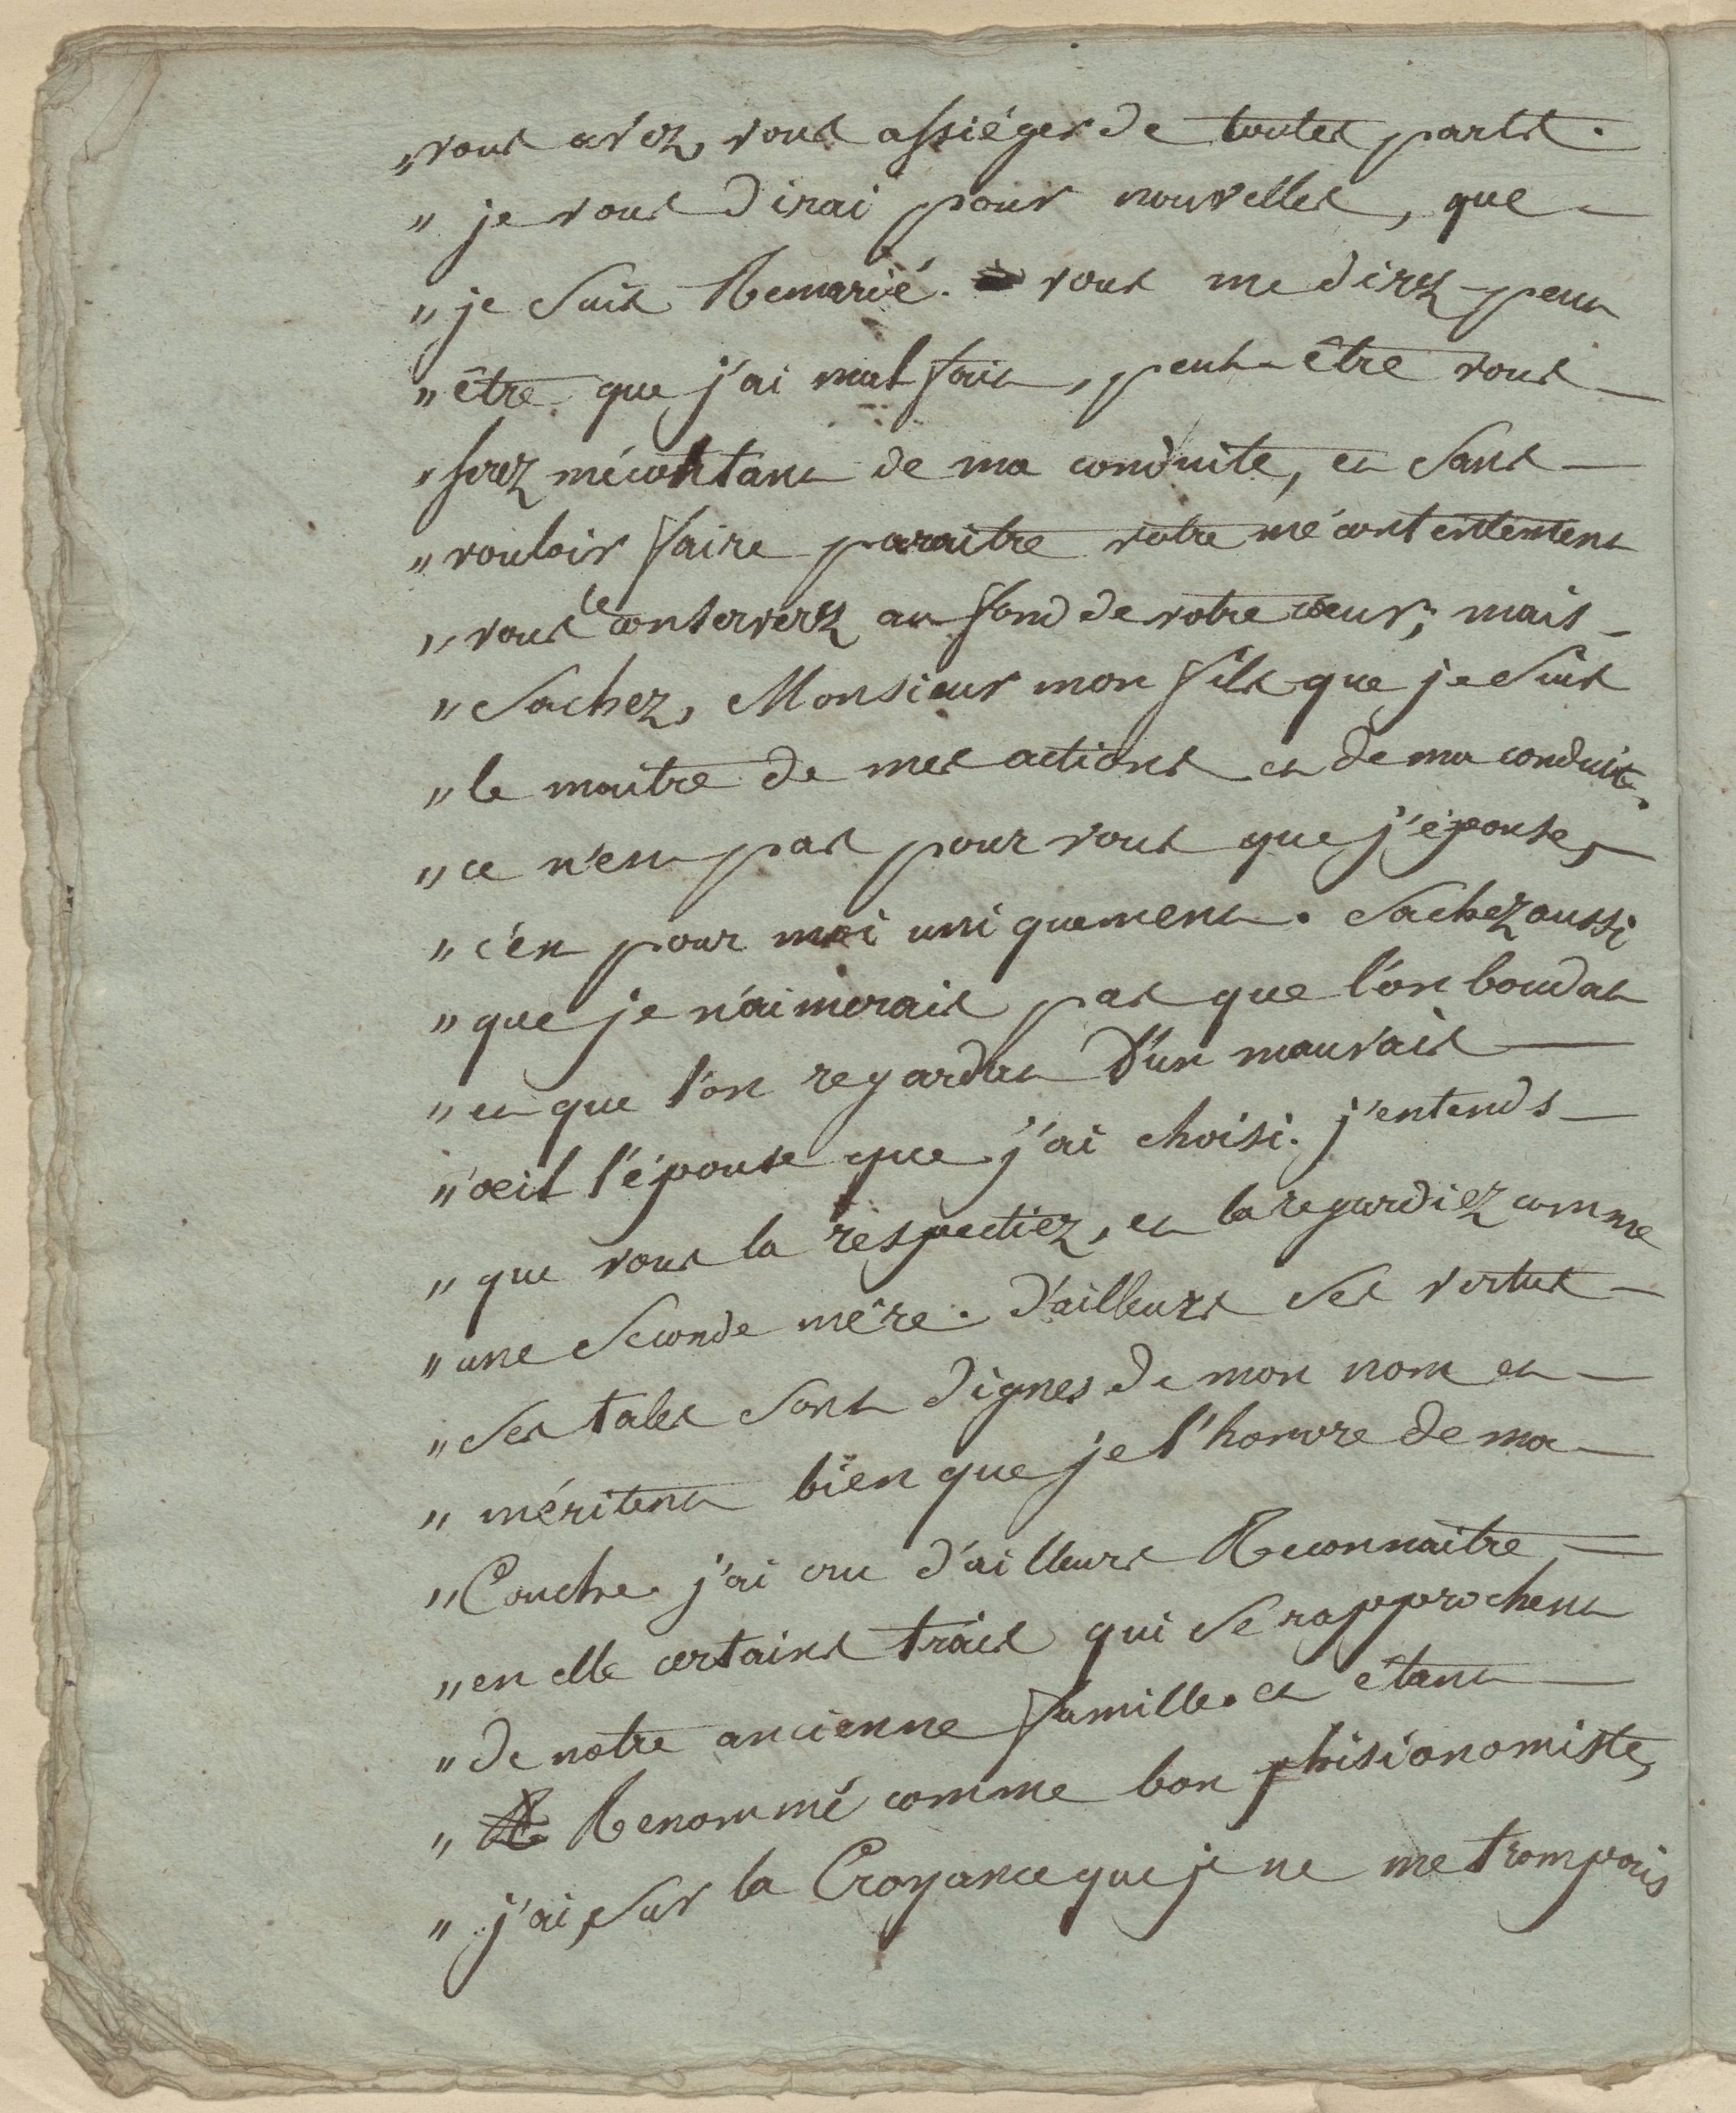 "vous avez, vous assiéger de toutes parts.
" je vous dirai pour nouvelles, que
" je suis Remarié. vous me direz peut
" être que j'ai mal fait, peut-être vous
" serez mécontant de ma conduite, et sans
" vouloir faire paraitre votre mécontentement
" vous le conserverez au fond de votre cœur; mais
" Sachez, Monsieur mon fils que je suis
" le maitre de mes actions et de ma conduite.
" ce n'est pas pour vous que j'épouse,
" c'est pour moi uniquement. Sachez aussi
" que je n'aimerais pas que l'on boudat
" et que l'on regardat d'un mauvais
" œil l'épouse que j'ai choisi. j'entends
" que vous la respectiez, et la regardiez comme
" une seconde mère. d'ailleurs ses vertus
" ses tales sont dignes de mon nom et
" méritent bien que je l'honore de ma
" Couche. j'ai cru d'ailleurs Reconnaitre,
" en elle certains traits qui se rapprochent
" de notre ancienne famille. et étant
" Renommé comme bon phisionomiste,
" j'ai, sur la Croyance que je ne me trompais